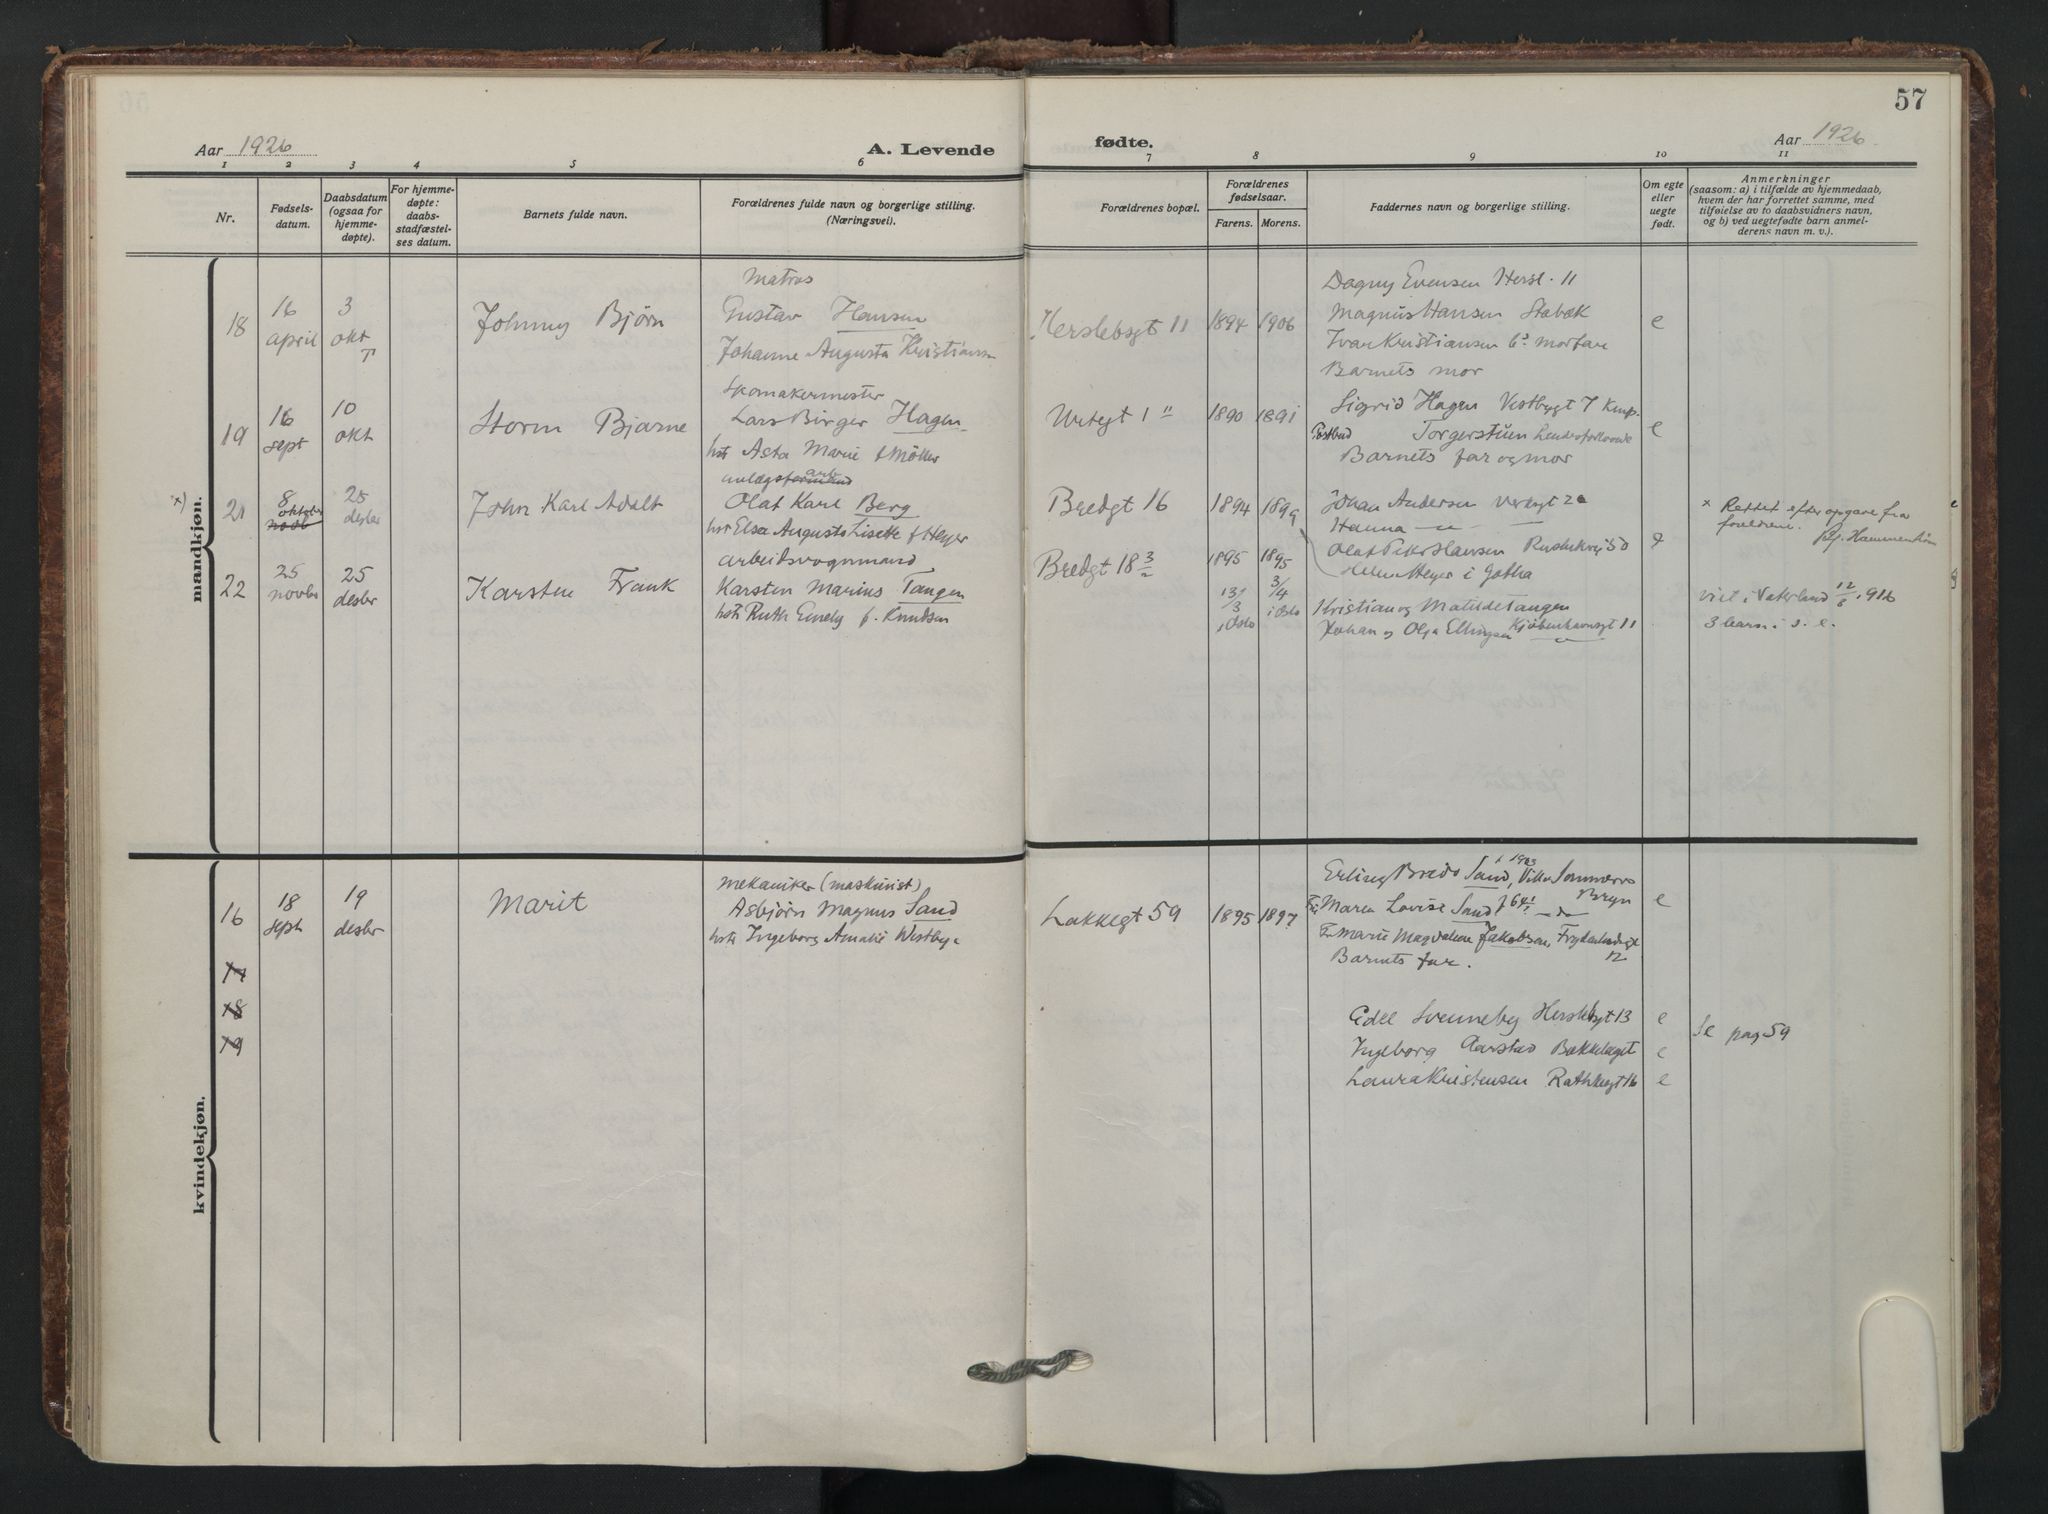 57
Aar 1926
A. Levende
fødte.
Aar 1926.
1 2 3 4 5 6 7 8 9 10 11
Nr.
Fødsels-
datum.
Daabsdatum
(ogsaa for
hjemme-
døpte).
For hjemme-
døpte:
daabs-
stadfæstel-
ses datum.
Barnets fulde navn.
Forældrenes fulde navn og borgerlige stilling.
(Næringsvei).
Forældrenes bopæl.
Forældrenes
fødselsaar.
Farens. Morens.
Faddernes navn og borgerlige stilling.
Om egte
eller
uegte
født.
Anmerkninger
(saasom: a) i tilfælde av hjemmedaab,
hvem der har forrettet samme, med
tilføielse av to daabsvidners navn,
og b) ved uegtefødte barn anmel-
derens navn m. v.).
mandkjøn.
18
16
april
3
okt
Johnny Bjørn
Matros
Gustav Hansen
Johanne Augusta Kristiansen
Herslebsgt 11
1894 1906
Dagny Evensen Hersl. 11
Magnus Hansen Stabæk
Ivar Kristiansen morfar
Barnets mor
e
19
16
sept
10
okt
Storm Bjarne
Skomakermester
Lars Birger Hagen
hstr Asta Marie f Möller
Urtegt 1
1890 1891
Sigrid Hagen Vestbygt 7
Postbud Torgerstuen
Barnets far og mor
e
x)
21
8
oktober
novb
25
desbr
John Karl Adolt
anlægsformand
arb
Olaf Karl Berg
hstr Elsa Augusta Lisette f Heyer
Bredgt 16
1894 1899
Johan Andersen
Hanna
Olaf Peter Hansen
Helene Heyer i Gotha
x Rettet efter opgave fra
foreldrene.
22
25
novbr
25
desbr
Karsten Frank
arbeidsvognmand
Karsten Marius Tangen
hstr Ruth Emely f. Knudsen
Bredgt 18
1895 1895
13/3
i Oslo
3/4
i Oslo
Kristian og Matilde Tangen
Johan og Olga Ellingsen Kjøbenhavnsgt 11
viet i Vaterland 12/8 1916
3 barn i s. e.
kvindekjøn.
16
18
sept
19
desbr
Marit
mekaniker (maskinist)
Asbjørn Magnus Sand
hstr Ingeborg Amalie Westbye
Lakkegt 59
1895 1897
Erling Bredo Sand, f 1903 Villa Sommerro
Bryn
Maren Lovise Sand f 64
Fr Marie Magdalene Jakobsen,
Barnets far.
e
17
18
19
Edel Svenneby Herslebsgt 13 e
Ingeborg Aarstad Bækkelaget e
Laura Kristensen Rathkesgt 16 e
Se pag 59